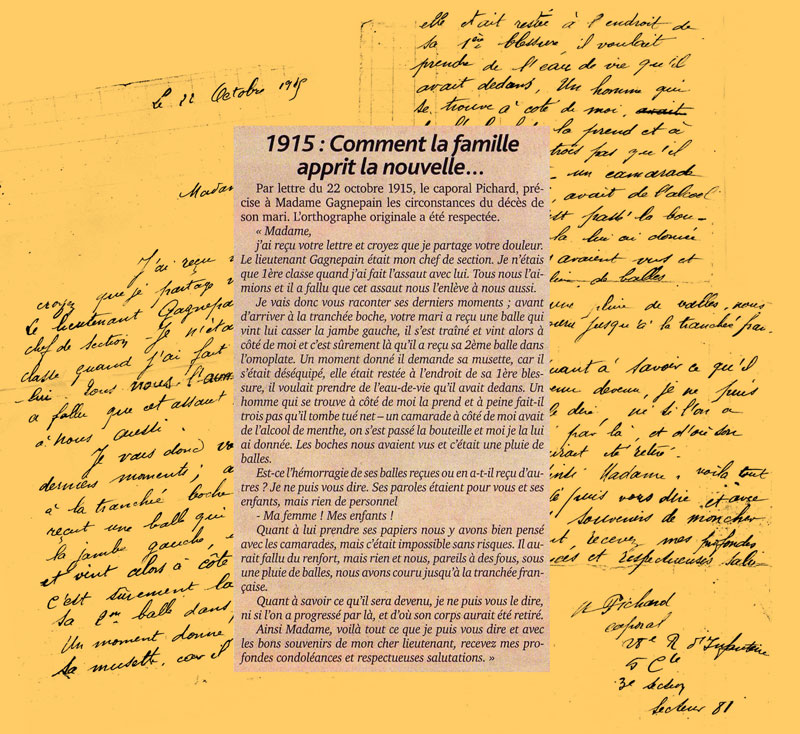 Le 22 Octobre 1915
Madam
J'ai reçu v
croyez que je partage v
Le lieutenant Gagnepa
chef de section - Je n'éta
classe quand j'ai fait
lui. Tous nous l'aim
a fallu que cet assaut
à nous aussi.
Je vais donc vo
derniers moments ; a
à la tranchée boche
reçut une balle qui
la jambe gauche,
et vint alors à côté
c'est sûrement la
sa 2me balle dans
Un moment donné,
sa musette, car il
1915 : Comment la famille
apprit la nouvelle…
Par lettre du 22 octobre 1915, le caporal Pichard, pré-
cise à Madame Gagnepain les circonstances du décès de
son mari. L'orthographe originale a été respectée.
« Madame,
j'ai reçu votre lettre et croyez que je partage votre douleur.
Le lieutenant Gagnepain était mon chef de section. Je n'étais
que 1ère classe quand j'ai fait l'assaut avec lui. Tous nous l'ai-
mions et il a fallu que cet assaut nous l'enlève à nous aussi.
Je vais donc vous raconter ses derniers moments ; avant
d'arriver à la tranchée boche, votre mari a reçu une balle qui
vint lui casser la jambe gauche, il s'est traîné et vint alors à
côté de moi et c'est sûrement là qu'il a reçu sa 2ème balle dans
l'omoplate. Un moment donné il demande sa musette, car il
s'était déséquipé, elle était restée à l'endroit de sa 1ère bles-
sure, il voulait prendre de l'eau-de-vie qu'il avait dedans. Un
homme qui se trouve à côté de moi la prend et à peine fait-il
trois pas qu'il tombe tué net – un camarade à côté de moi avait
de l'alcool de menthe, on s'est passé la bouteille et moi je la lui
ai donnée. Les boches nous avaient vus et c'était une pluie de
balles.
Est-ce l'hémorragie de ses balles reçues ou en a-t-il reçu d'au-
tres ? Je ne puis vous dire. Ses paroles étaient pour vous et ses
enfants, mais rien de personnel
- Ma femme ! Mes enfants !
Quant à lui prendre ses papiers nous y avons bien pensé
avec les camarades, mais c'était impossible sans risques. Il au-
rait fallu du renfort, mais rien et nous, pareils à des fous, sous
une pluie de balles, nous avons couru jusqu'à la tranchée fran-
çaise.
Quant à savoir ce qu'il sera devenu, je ne puis vous le dire,
ni si l'on a progressé par là, et d'où son corps aurait été retiré.
Ainsi Madame, voilà tout ce que je puis vous dire et avec
les bons souvenirs de mon cher lieutenant, recevez mes pro-
fondes condoléances et respectueuses salutations. »
elle était restée à l'endroit de
sa 1ère blessure, il voulait
prendre de l'eau de vie qu'il
avait dedans, Un homme qui
se trouve à côté de moi, avait
la prend et à
trois pas qu'il
un camarade
avait de l'alcool
est passé la bou-
la lui ai donnée
avaient vus et
de balles
une pluie de balles, nous
jusqu'à la tranchée fran-
uant à savoir ce qu'il
devenu, je ne puis
le dire, ni si l'on a
par là, et d'où son
urait été retiré.
Madame, voilà tout
puis vous dire et avec
souvenirs de mon cher
recevez mes profondes
et respectueuses salu
A Pichard
caporal
R d'Infanterie
5 Cie
3e section
Secteur 81